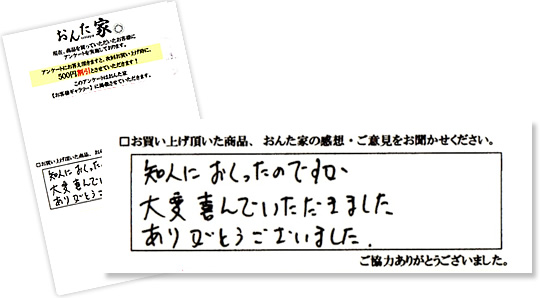 おんた家
現在、商品を買っていただいたお客様に
アンケートを実施しております。
アンケートにお答え頂きますと、次回お買い上げ時に、
500円割引とさせていただきます！
このアンケートはおんた家
【お客様ギャラリー】に掲載させていただきます。
□お買い上げ頂いた商品、おんた
知人に おくっ
大変喜んでい
ありがとうござ
□お買い上げ頂いた商品、おんた家の感想・ご意見をお聞かせください。
知人に おくったのですが、
大変喜んでいただきました
ありがとうございました.
ご協力ありがとうございました。